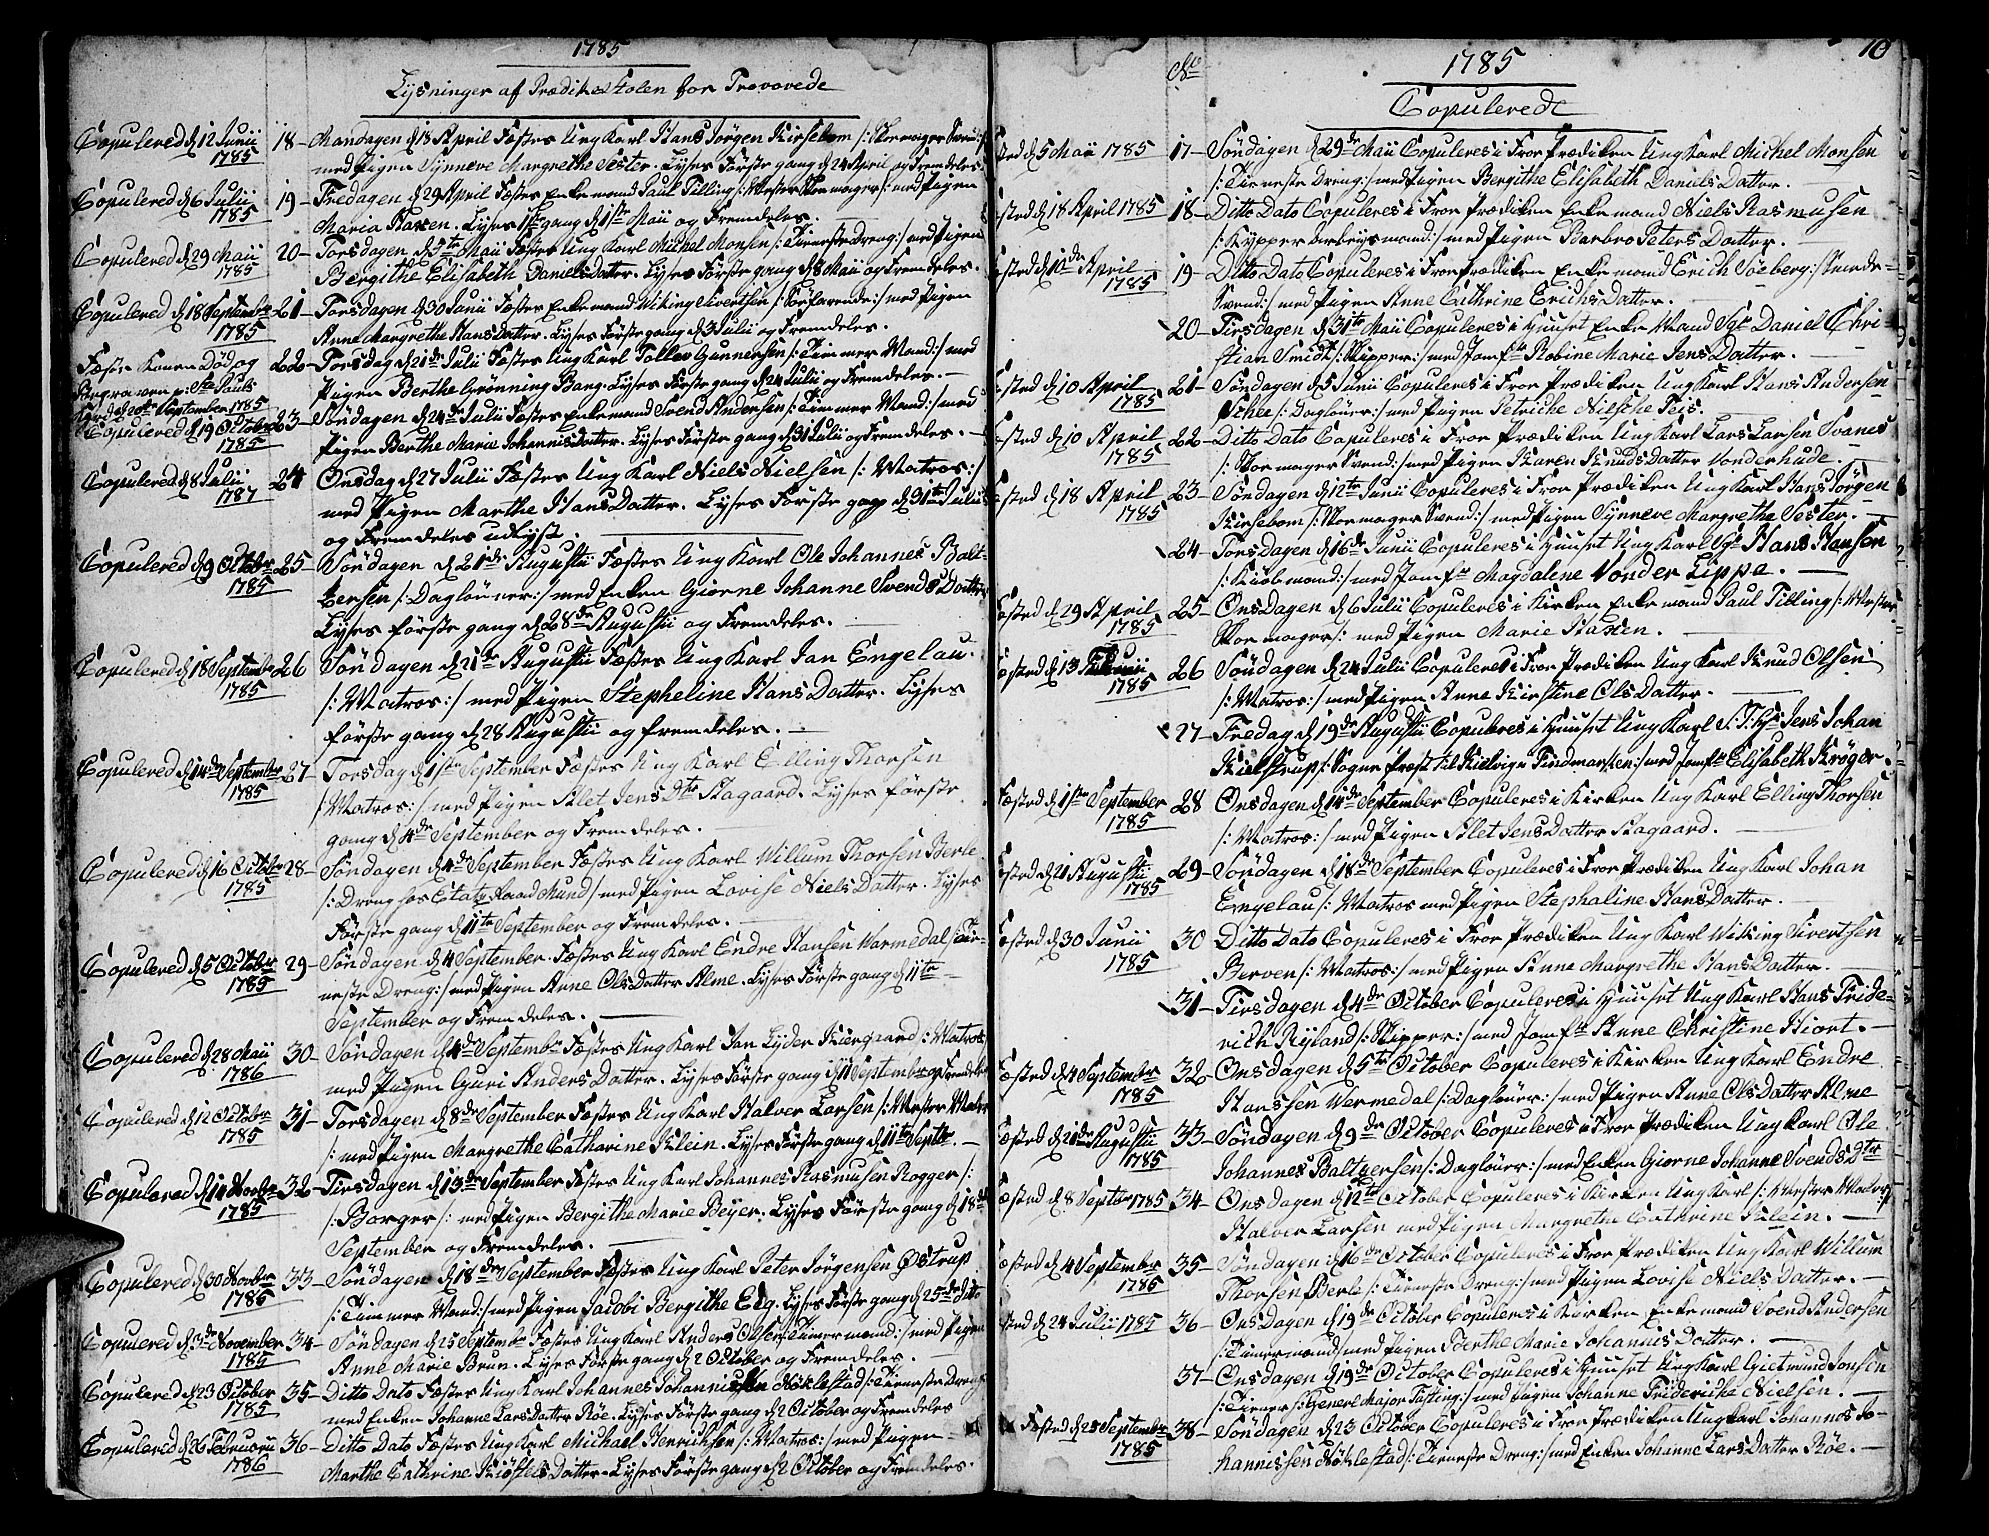 1785
Lysninger af Prædikestolen for Trovovede
Copulered d 12 Junii 1785 18- Mandagen d 18 April Fæstes Ung Karl Hans Jørgen Kirsebom /: Skomager Svend:/
med Pigen Synneve Margrethe Sester. Lyses Første gang d 24 April og Fremdeles.
Copulered d 6 Julii 1785 19- Fredagen d 29 April Fæstes Enkemand Paul Tilling /: Mester Skomager:/ med Pigen
Maria Hasen. Lyses 1ste gang d 1ste Maii og Fremdeles.
Copulered d 29 Maii 1785 20- Torsdagen d 5te Maii Fæstes Ung Karl Michel Monsen /: Tieneste Dreng:/ med Pigen
Bergithe Elisabeth Danielsdatter. Lyses Første gang d 8 Maii og Fremdeles.
Copulered d 18 Septembr 1785 21- Torsdagen d 30 Junii Fæstes Enkemand Wiking Sivertsen /: Søefarende:/ med Pigen
Anne Margrethe Hans Datter. Lyses Første gang d 3 Julii og Fremdeles.
Fæste Konen Død og 22- Torsdag d 21de Julii Fæstes Ung Karl Tollev Gunnersen /: Timmer Mand:/ med
Begraven p: Ste Pauls Pigen Berthe Grønning Bang. Lyses Første gang d 24 Julii og Fremdeles.
d 20 September 1785
Copulered d 19 October 1785 23- Søndagen d 24de Julii Fæstes Enkemand Svend Andersen /: Timmer Mand:/ med
Pigen Berthe Marie Johannisdatter. Lyses Første gang d 31 Julii og Fremdeles.
Copulered d 8 Julii 1787 24 Onsdag d 27 Julii Fæstes Ung Karl Niels Nielsen /: Matros:/
med Pigen Marthe Hans Datter. Lyses Første gang d 31te Julii
og Fremdeles udlyst.
Copulered d 9 Octobr 1785 25- Søndagen d 21de Augustii Fæstes Ung Karl Ole Johannes Balt-
zersen /: Dagløner:/ med Enken Giørne Johanne Svends Datter
Lyses første gang d 28de Augustii og Fremdeles.
Copulered d 18 Septembr 1785 26 Søndagen d 21de Augustii Fæstes Ung Karl Jan Engelau.
/: Matros:/ med Pigen Stepheline Hans Datter. Lyses
første gang d 28 Augustii og fremdeles.
Copulered d 14de September 1785 27- Torsdag d 1ste September Fæstes Ung Karl Elling Thorsen
/: Matros:/ med Pigen Alet Jens Dtr Aagaard. Lyses første
gang d 4de September og Fremdeles.
Copulered d 16 Octobr 1785 28- Søndagen d 4de September Fæstes Ung Karl Willum Thorsen Berle
/: Dreng hos Etats Raad Mund/ med Pigen Lovise Niels Datter. Lyses
Første gang d 11te September og Fremdeles.
Copulered d 5 October 1785 29- Søndagen d 4 September. Fæstes Ung Karl Endre Hansen Warmedal /: Tie-
neste Dreng:/ med Pigen Anne Ols Datter Alme. Lyses Første gang d 11te
September og Fremdeles.
Copulered d 28 Maii 1786 30- Søndagen d 4de Septembr Fæstes Ung Karl Jan Lyder Kiergaard /: Matros
med Pigen Guri Anders Datter. Lyses Første gang d 11 Septembr og Fremdeles
Copulered d 12 Octobr 1785 31- Torsdagen d 8de September Fæstes Ung Karl Halver Larsen /: Mester
/: med Pigen Margrethe Catharine Klein. Lyses Første gang d 11te Septbr.
Copulered d 14 Novbr 1785 32- Tirsdagen d 13de September Fæstes Ung Karl Johannes Rasmusen Rogger /:
/: Borger /: med Pigen Bergithe Marie Beyer. Lyses Første gang d 18de
September og Fremdeles.
Copulered d 30 Novbr 1785 33- Søndagen d 18de September Fæstes Ung Karl Peter Jørgensen Østrup
/: Timmer Mand:/ med Pigen Jacobi Bergithe Elg. Lyses Første gang d 25de dito
Copulered d 3de November 1785 34- Søndagen d 25 Septembr Fæstes Ung Karl Anders Olsen Timermand:/ med Pigen
Anne Marie Brun. Lyses Første gang d 2 October og Fremdeles.
Copulered d 23 October 1785 35- Ditto Dato Fæstes Ung Karl Johannes Johannissen Nøklestad /: Tieneste Dreng
med Enken Johanne Lars Datter Røe. Lyses Første gang d 2 October og Fremdeles
Copulered d 26 Februarii 1786 36- Ditto Dato Fæstes Ung Karl Michael Henrichsen /: Matros:/ med Pigen-
Marthe Cathrine Kiøstels Datter. Lyses Første gang d 2 October og Fremdeles.
10
No 1785
Copulerede
Fæsted d 5 Maii 1785 17- Søndagen d 29de Maii Copuleres i Fror Prædiken Ung Karl Michel Monsen
/: Tieneste Dreng:/ med Pigen Bergithe Elisabeth Daniels Datter.
Fæsted d 18 April 1785 18- Ditto Dato Copuleres i Fror Prædiken Enkemand Niels Rasmusen
/: Kypper Arbeysmand:/ med Pigen Barbro Peters Datter.
Fæsted d April 1785 19- Ditto Dato Copuleres i Fror Prædiken Enkemand Erich Søeberg /: Smede-
Svend:/ med Pigen Anne Cathrine Erichs Datter.
20- Tirsdagen d 31te Maii Copuleres i Huuset Enke Mand Sgr Daniel Chri-
stian Smidt /: Skipper:/ med Jomfr Robine Marie Jens Datter.
Fæsted d 10 April 1785 21- Søndagen d 5 Junii Copuleres i Fror Prædiken Ung Karl Hans Andersen
Schee /: Dagløner:/ med Pigen Petriche Nilsche Feis.
Fæsted d 10 April 1785 22- Ditto Dato Copuleres i Fror Prædiken Ung Karl Lars Larsen Svanes
/: Skomager Svend:/ med Pigen Karen Knuds Datter Vonderhude.
Fæsted d 18 April 1785 23- Søndagen d 12te Junii Copuleres i Fror Prædiken Ung Karl Hans Jørgen
Kirsebom /: Skomager Svend:/ med Pigen Synneve Margrethe Sester.
24- Torsdagen d 16de Junii Copuleres i Huuset Ung Karl Sgr Hans Hansen
/: Kiøbmand:/ med Jomfr Magdalene Vonder Lippe.
Fæsted d 29 April 1785 25- Onsdagen d 6 Julii Copuleres i Kirken Enkemand Paul Tilling /: Mester
Skomager/: med Pigen Marie Hasen.
Fæsted d 13 1785 26 Søndagen d 24 Julii Copuleres i Fror Prædiken Ung Karl Knud Olsen
/: Matros:/ med Pigen Anne Kirstine Ols Datter.
27- Fredag d 19de Augustii Copuleres i Huuset Ung Karl S:T: Hr Jens Johan
Kielstrup /: Sogne Præst til Kielvig i Findmarken:/ med Jomfr Elisabeth Krøger.
Fæsted d 1ste September 1785 28 Onsdagen d 14de September Copuleres i Kirken Ung Karl Elling Thorsen
/: Matros:/ med Pigen Alet Jens Datter Aagaard.
Fæsted d 21 Augustii 1785 29- Søndagen d 18de September Copuleres i Fror Prædiken Ung Karl Johan
Engelau /: Matros med Pigen Stephaline Hans Datter.
Fæsted d 30 Junii 1785 30 Ditto Dato Copuleres i Fror Prædiken Ung Karl Wiking Sivertsen
Berven /: Matros:/ med Pigen Anne Margrethe Hans Datter.
31- Tirsdagen d 4de October Copuleres i Huuset Ung Karl Hans Fride-
rich Ryland /: Skipper:/ med Jomfr Anne Christine Hiort.
Fæsted d 4 Septembr 1785 32- Onsdagen d 5te October Copuleres i Kirken Ung Karl Endre
Hanssen Vermedal /: Dagløner:/ med Pigen Anne Ols Datter Alme
Fæsted d 21de Augustii 1785 33- Søndagen d 9de October Copuleres i Fror Prædiken Ung Karl Ole
Johannes Baltzersen /: Dagløner:/ med Enken Giørne Johanne Svends Dtr
Fæsted d 8 Septbr 1785 34- Onsdagen d 12te October Copuleres i Kirken Ung Karl /: Mester
Halver Larsen med Pigen Margrethe Cathrine Klein.
Fæsted d 4 September 1785 35- Søndagen d 16de October Copuleres i Fror Prædiken Ung Karl Willum
Thorsen Berle /: Tieneste Dreng:/ med Pigen Lovise Niels Datter.
Fæsted d 24 Julii 1785 36- Onsdagen d 19de October Copuleres i Kirken Enkemand Svend Andersen
/: Timermand/ med Pigen Berthe Marie Johannis Datter.
37- Onsdagen d 19de October Copuleres i Huuset Ung Karl Giermund Jonsen
/: Tiener /: Generl Major Fasting:/ med Pigen Johanne Friderichе Nielsen.
Fæsted d 25 Septembr 1785 38- Søndagen d 23 October Copuleres i Fror Prædiken Ung Karl Johannes Jo-
hannissen Nøklestad /: Tieneste Dreng:/ med Enken Johanne Lars Datter Røe.